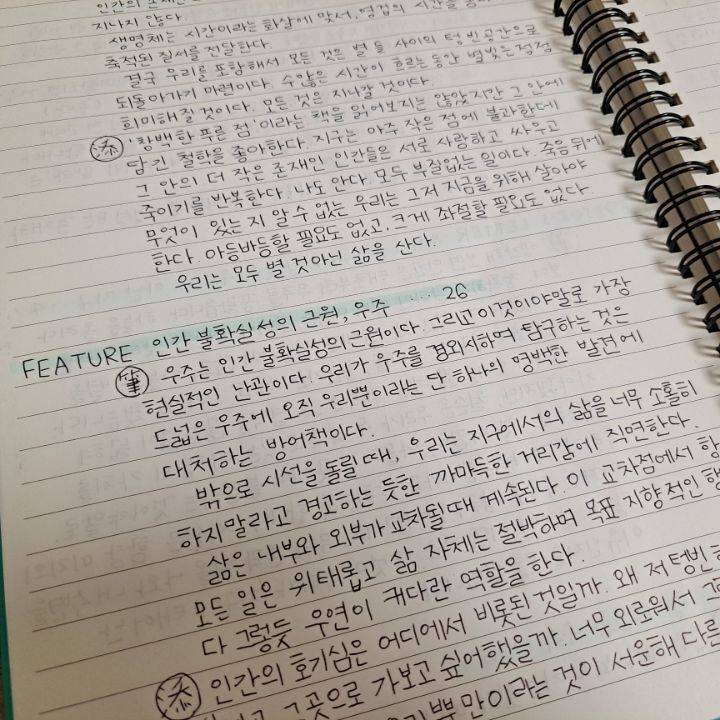 인간의 존재는
지나지 않다.
생명체는 시간이라는 화살에 맞서, 영겁의 시간을
축적된 질서를 전달한다.
결국 우리를 포함해서 모든 것은 별들 사이의 텅 빈 공간으로
되돌아가기 마련이다. 수많은 시간이 흐르는 동안 별빛은 점점
희미해질 것이다. 모든 것은 지나갈 것이다.
添 '창백한 푸른 점'이라는 책을 읽어보지는 않았지만 그 안에
담긴 철학을 좋아한다. 지구는 아주 작은 점에 불과한데
그 안의 더 작은 존재인 인간들은 서로 사랑하고 싸우고
죽이기를 반복한다. 나도 안다. 모두 부질없는 일이다. 죽음 뒤에
무엇이 있는지 알 수 없는 우리는 그저 지금을 위해 살아야
한다. 아등바등할 필요도 없고, 크게 좌절할 필요도 없다.
우리는 모두 별 것 아닌 삶을 산다.
FEATURE 인간 불확실성의 근원, 우주 ···· 26
筆 우주는 인간 불확실성의 근원이다. 그리고 이것이야말로 가장
현실적인 난관이다. 우리가 우주를 경외시하며 탐구하는 것은
드넓은 우주에 오직 우리뿐이라는 단 하나의 명백한 발견에
대처하는 방어책이다.
밖으로 시선을 돌릴 때, 우리는 지구에서의 삶을 너무 소홀히
하지 말라고 경고하는 듯한 까마득한 거리감에 직면한다.
삶은 내부와 외부가 교차될 때 계속된다. 이 교차점에서 항
모든 일은 위태롭고 삶 자체는 절박하며 목표 지향적인 행
다 그렇듯 우연이 커다란 역할을 한다.
添 인간의 호기심은 어디에서 비롯된 것일까. 왜 저 텅 빈
그곳으로 가보고 싶어했을까. 너무 외로워서 그
우리뿐만이라는 것이 서운해 다른